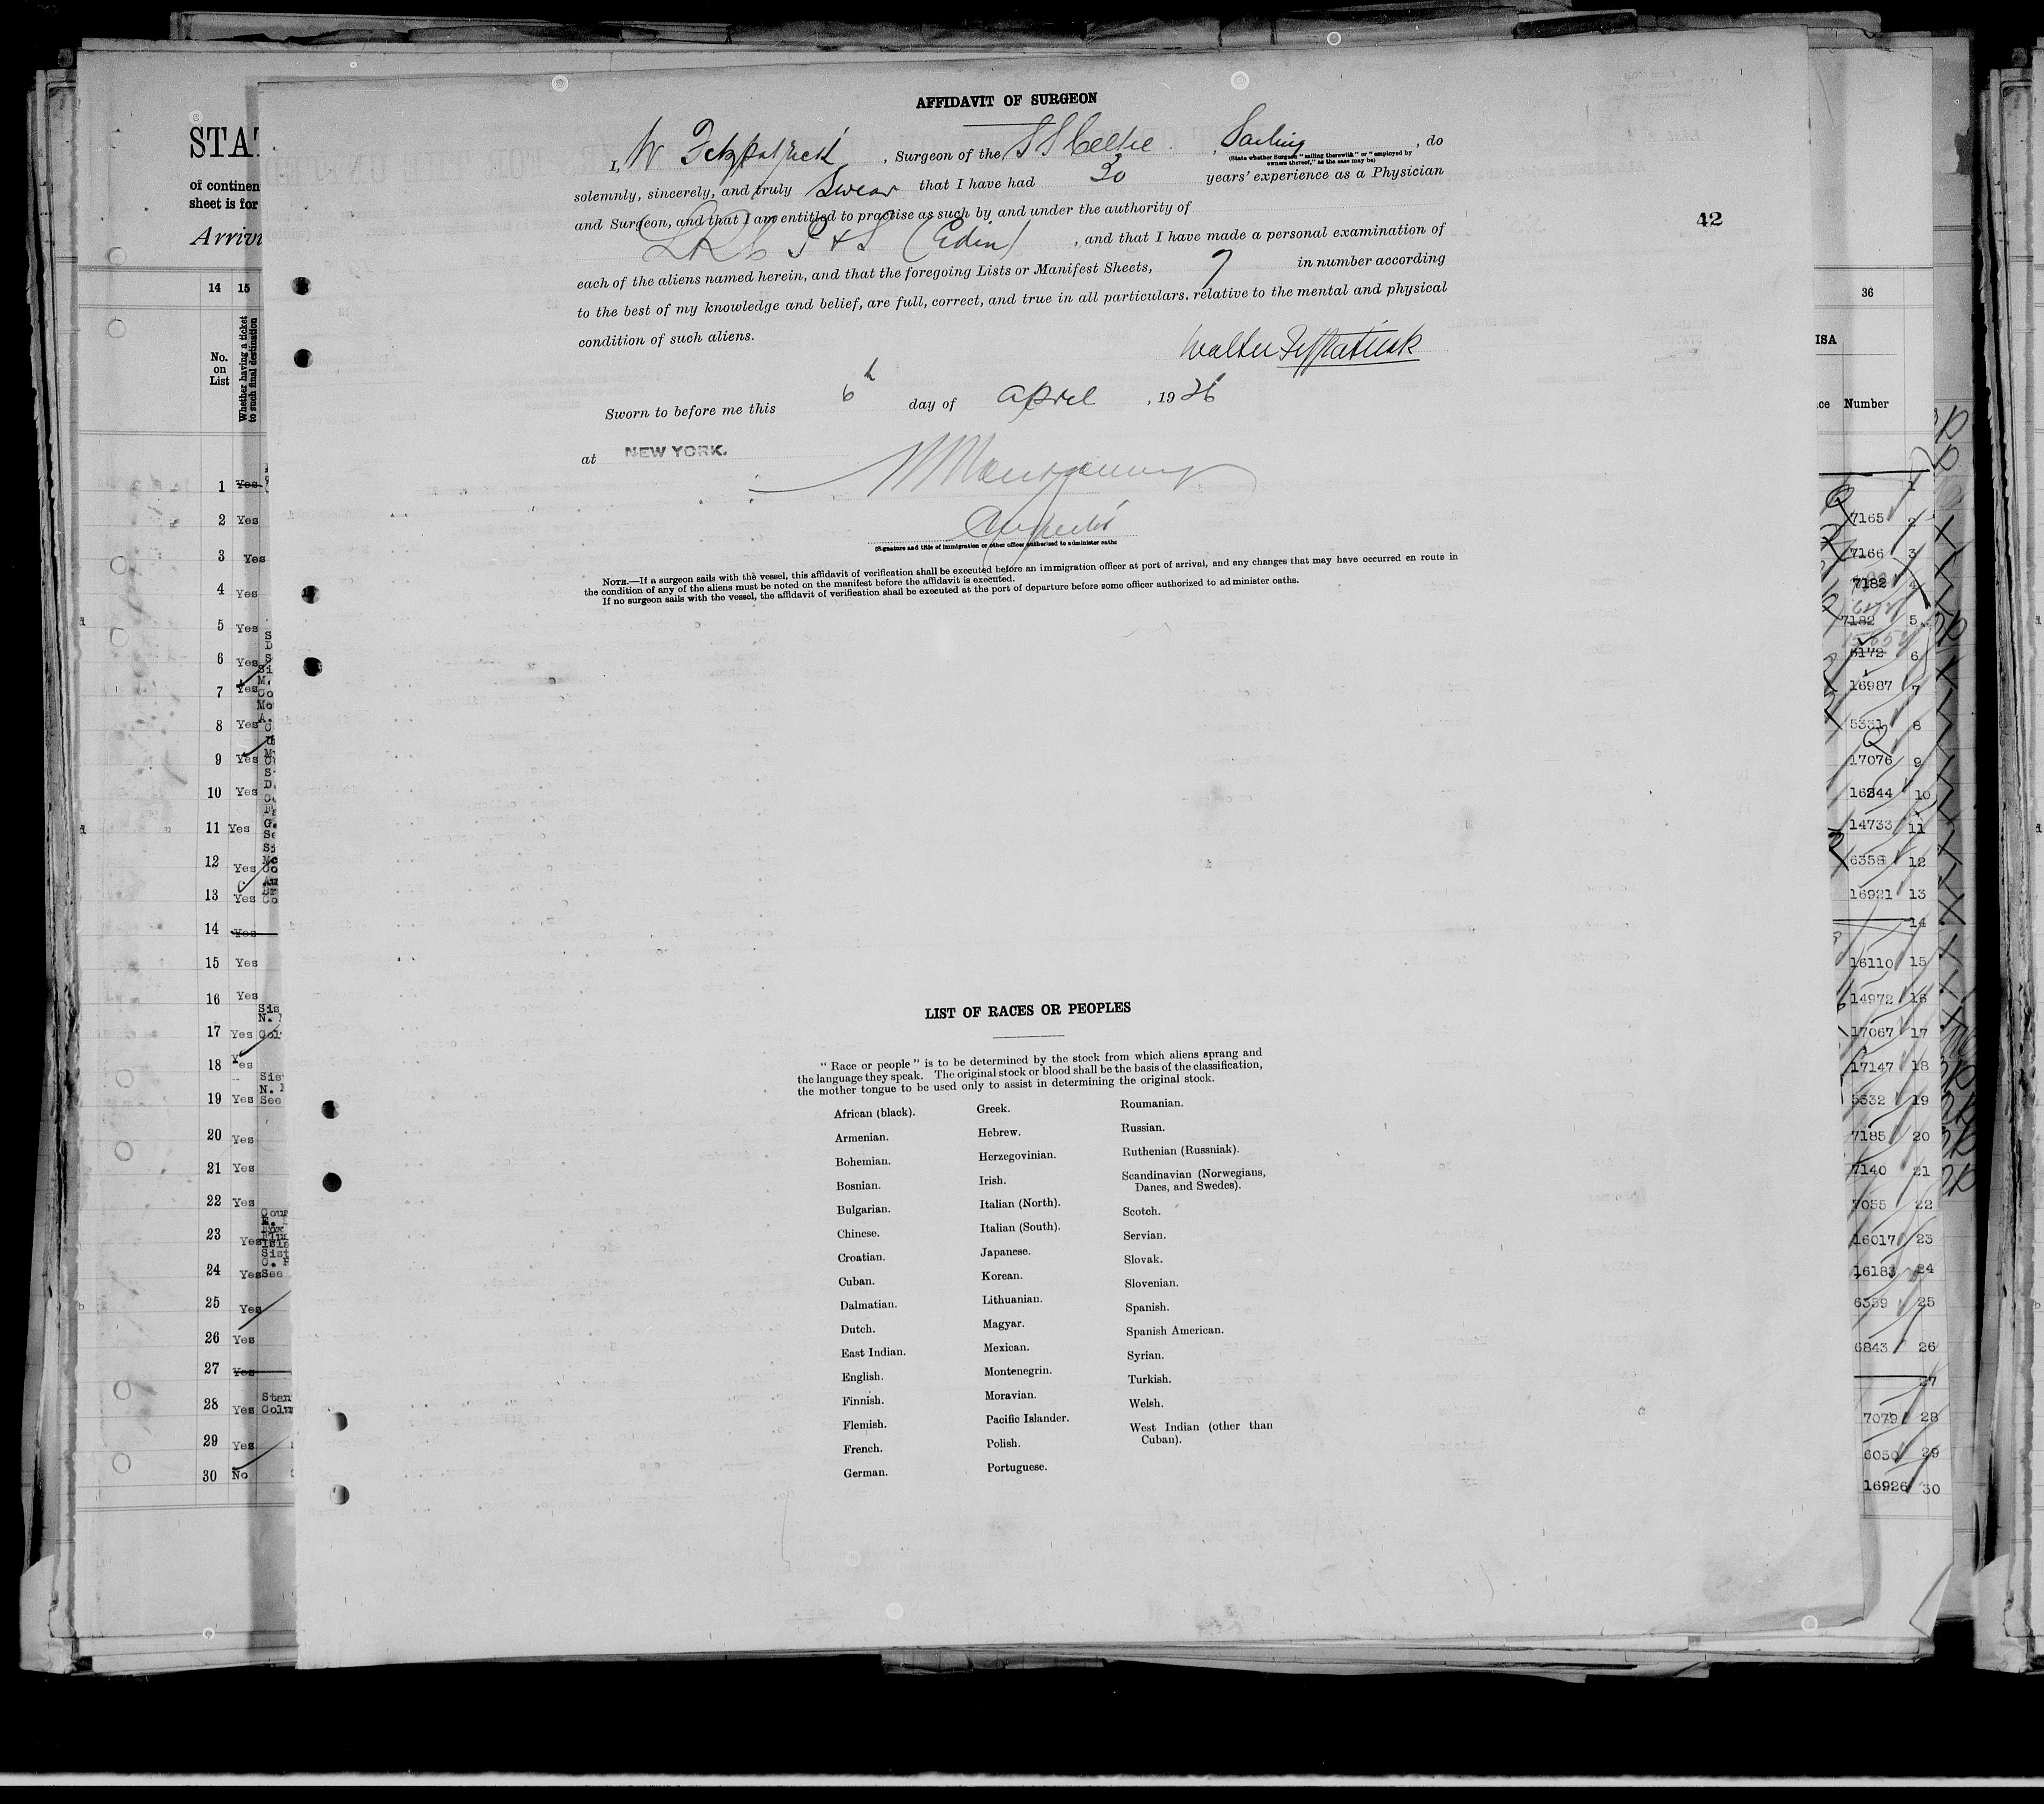 AFFIDAVIT OF SURGEON
I, W Fitzpatrick, Surgeon of the SS Celtic, Sailing, do
(State whether Surgeon "sailing therewith" or "employed by
owners thereof," as the case may be)
solemnly, sincerely, and truly Swear that I have had 30 years' experience as a Physician
and Surgeon, and that I am entitled to practise as such by and under the authority of
LRC P & S (Edin), and that I have made a personal examination of
each of the aliens named herein, and that the foregoing Lists or Manifest Sheets, 7 in number according
to the best of my knowledge and belief, are full, correct, and true in all particulars, relative to the mental and physical
condition of such aliens.
Walter Fitzpatrick
Sworn to before me this 6th day of April, 1926
at NEW YORK.
(Signature and title of immigration or other officer authorised to administer oaths
NOTE.—If a surgeon sails with the vessel, this affidavit of verification shall be executed before an immigration officer at port of arrival, and any changes that may have occurred en route in
the condition of any of the aliens must be noted on the manifest before the affidavit is executed.
If no surgeon sails with the vessel, the affidavit of verification shall be executed at the port of departure before some officer authorized to administer oaths.
42
LIST OF RACES OR PEOPLES
"Race or people" is to be determined by the stock from which aliens sprang and
the language they speak. The original stock or blood shall be the basis of the classification,
the mother tongue to be used only to assist in determining the original stock.
African (black).
Armenian.
Bohemian.
Bosnian.
Bulgarian.
Chinese.
Croatian.
Cuban.
Dalmatian.
Dutch.
East Indian.
English.
Finnish.
Flemish.
French.
German.
Greek.
Hebrew.
Herzegovinian.
Irish.
Italian (North).
Italian (South).
Japanese.
Korean.
Lithuanian.
Magyar.
Mexican.
Montenegrin.
Moravian.
Pacific Islander.
Polish.
Portuguese.
Roumanian.
Russian.
Ruthenian (Russniak).
Scandinavian (Norwegians,
Danes, and Swedes).
Scotch.
Servian.
Slovak.
Slovenian.
Spanish.
Spanish American.
Syrian.
Turkish.
Welsh.
West Indian (other than
Cuban).
STAT
of continen
sheet is for
14 15
No.
on
List
Whether having a ticket
to such final destination
1 Yes
2 Yes
3 Yes
4 Yes
5 Yes
6 Yes
7 Yes
8 Yes
9 Yes
10 Yes
11 Yes
12 Yes
13 Yes
14 Yes
15 Yes
16 Yes
17 Yes
18 Yes
19 Yes See
20 Yes
21 Yes
22 Yes
23 Yes
24 Yes See
25 Yes
26 Yes
27 Yes
28 Yes
29 Yes
30 No
36
Number
1
7165 2
7166 3
7182 4
7182 5
6
16987 7
5331 8
17076 9
10
14733 11
6358 12
16921 13
14
16110 15
14972 16
17067 17
17147 18
5332 19
7185 20
7140 21
7055 22
16017 23
16183 24
6359 25
6843 26
27
7079 28
6050 29
16926 30